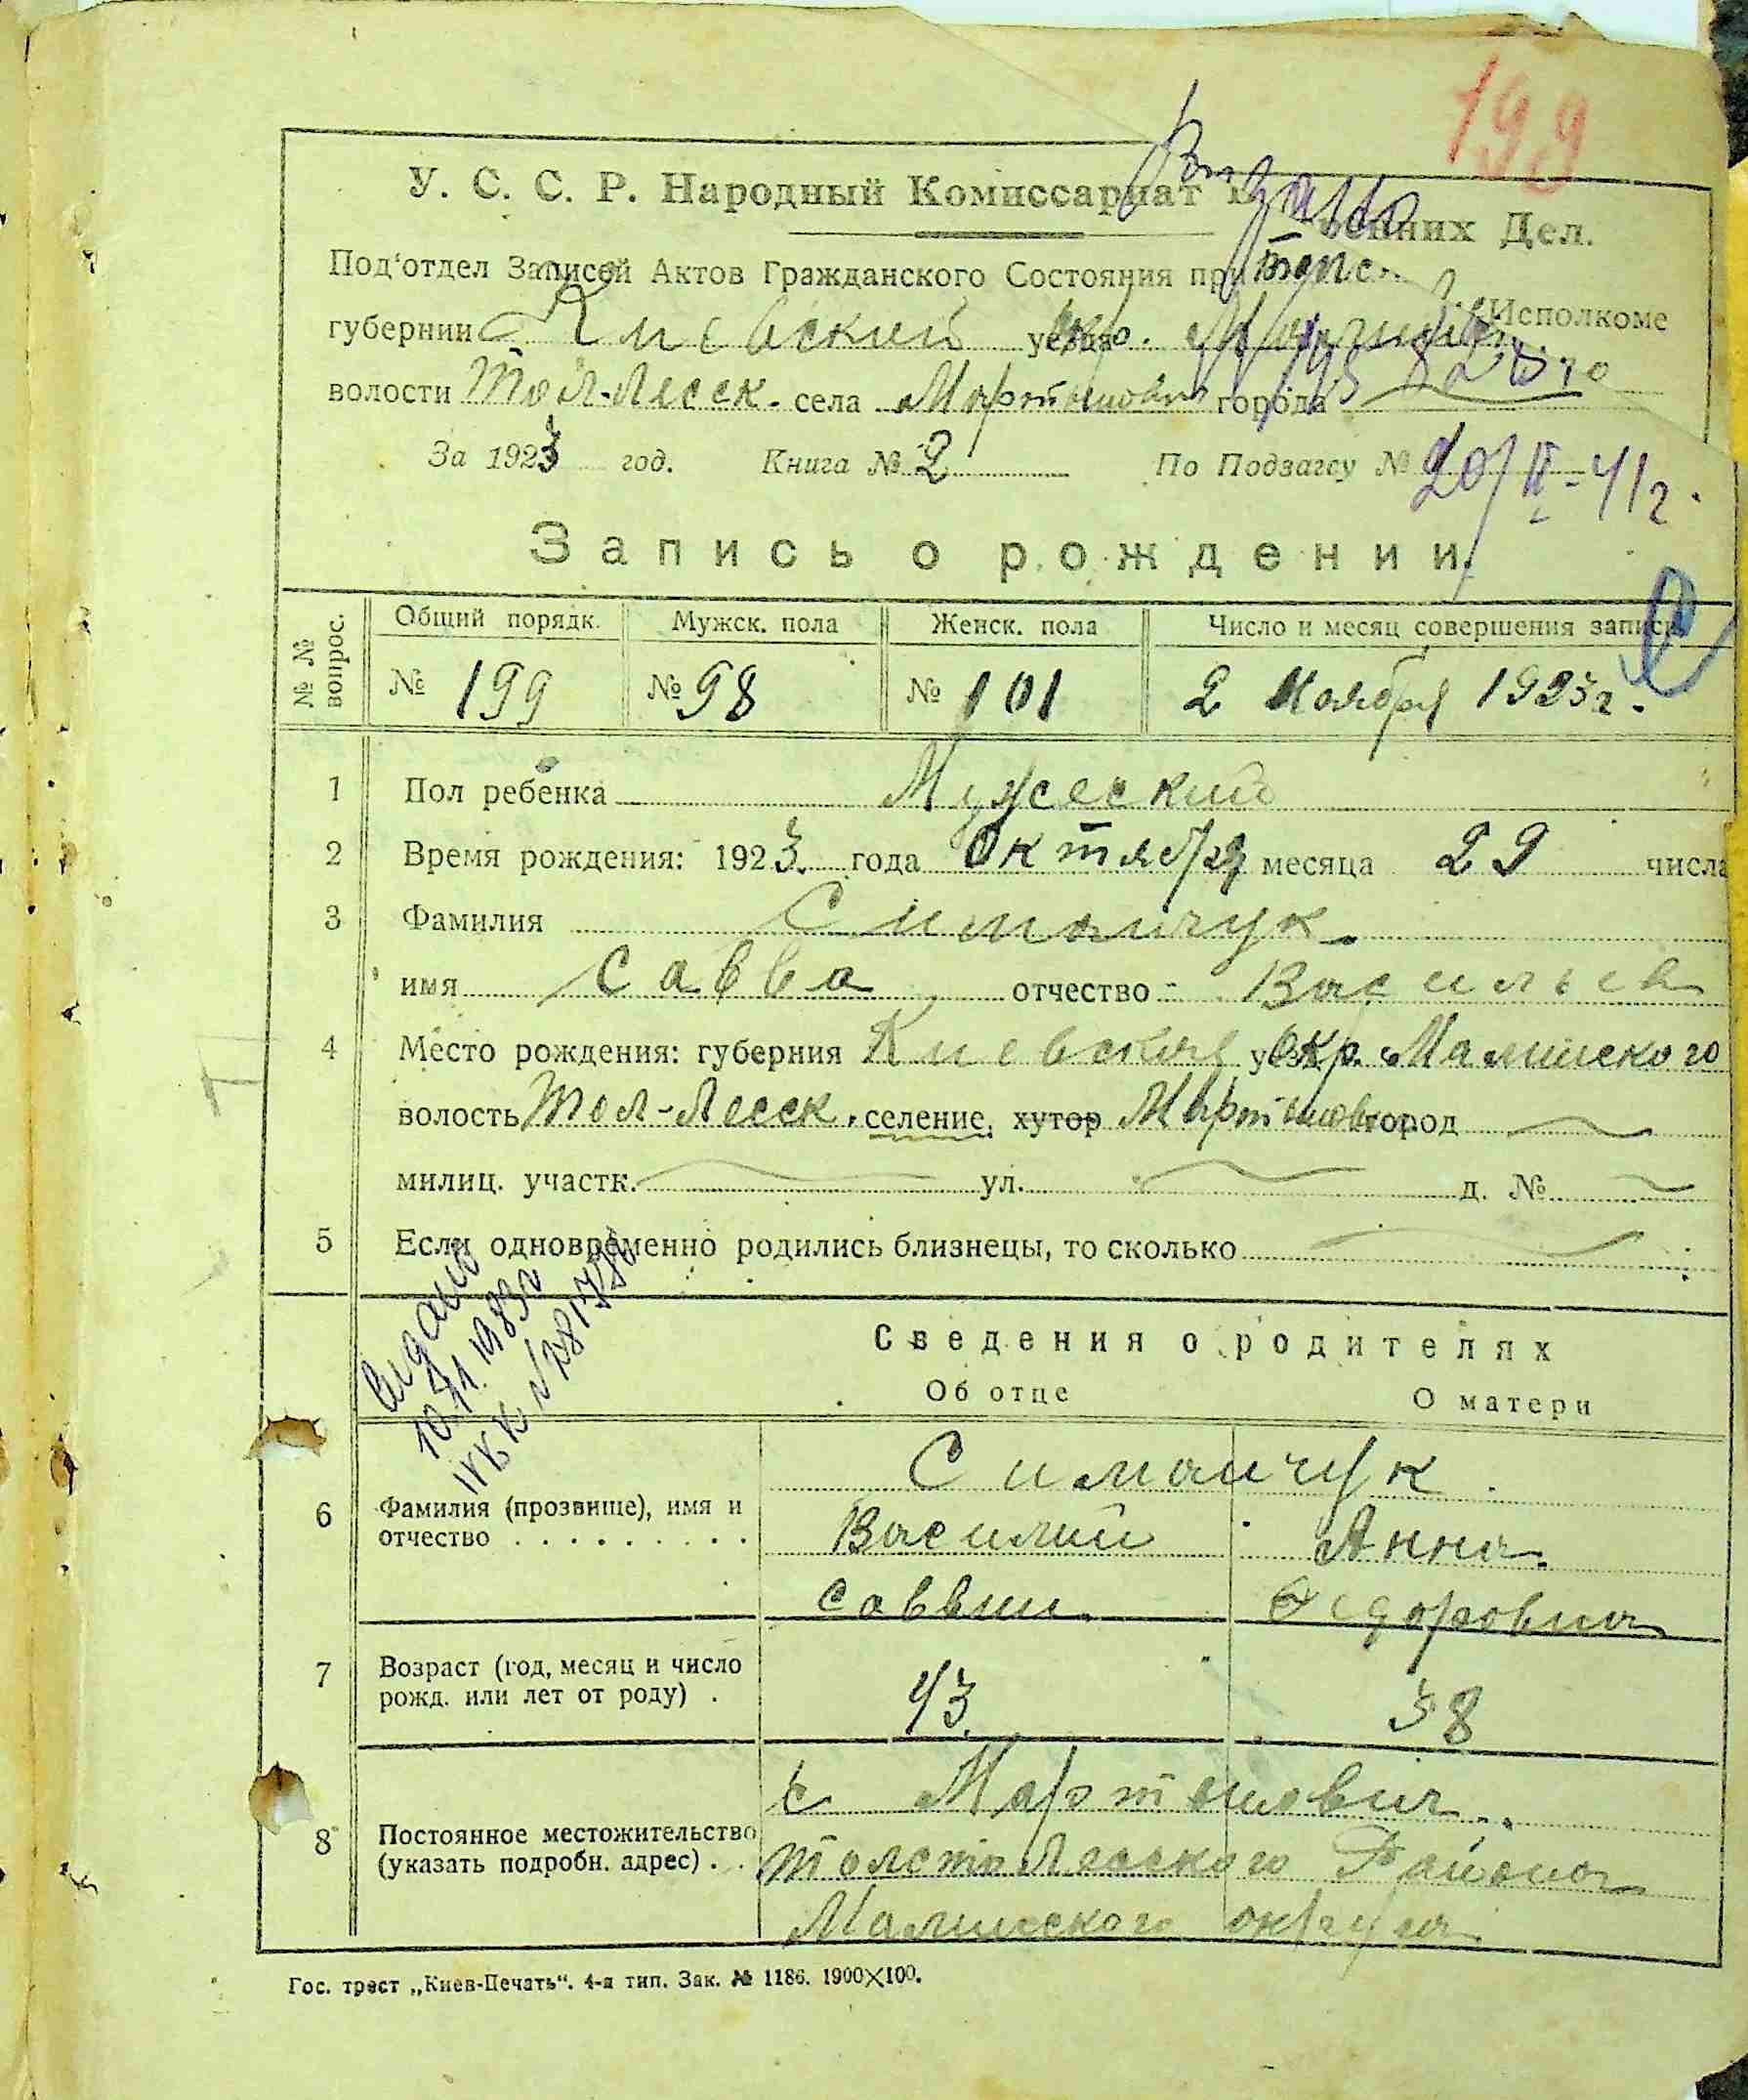 199
У. С. С. Р. Народный Комиссариат Внутренних Дел.
Под'отдел Записей Актов Гражданского Состояния при Исполкоме
губернии Киевский уезда окр. Малинский
волости Тол-Лесск. села Мартынович города
За 1923 год. Книга № 2 По Подзагсу №
20/II-41г.
Запись о рождении.
№ № вопрос. Общий порядк. Мужск. пола Женск. пола Число и месяц совершения записи
№ 199 № 98 № 101 2 Ноября 1923г.
1 Пол ребенка Мужеский
2 Время рождения: 1923 года Октября месяца 29 числа
3 Фамилия Симанчук
имя Савва отчество Васильев
4 Место рождения: губерния Киевская уезд окр. Малинского
волость Тол-Лесск. селение, хутор Мартынович город
милиц. участк. ул. д. №
5 Если одновременно родились близнецы, то сколько
видано
10.11.1983г
Сведения о родителях
Об отце О матери
Симанчук
6 Фамилия (прозвище), имя и отчество Василий Анна
Саввин Федоровна
7 Возраст (год, месяц и число рожд. или лет от роду) . 43 38
с Мартынович
8 Постоянное местожительство (указать подробн. адрес) . . Толсто Лесского Района
Малинского округа
Гос. трест „Киев-Печать“. 4-я тип. Зак. № 1186. 1900X100.